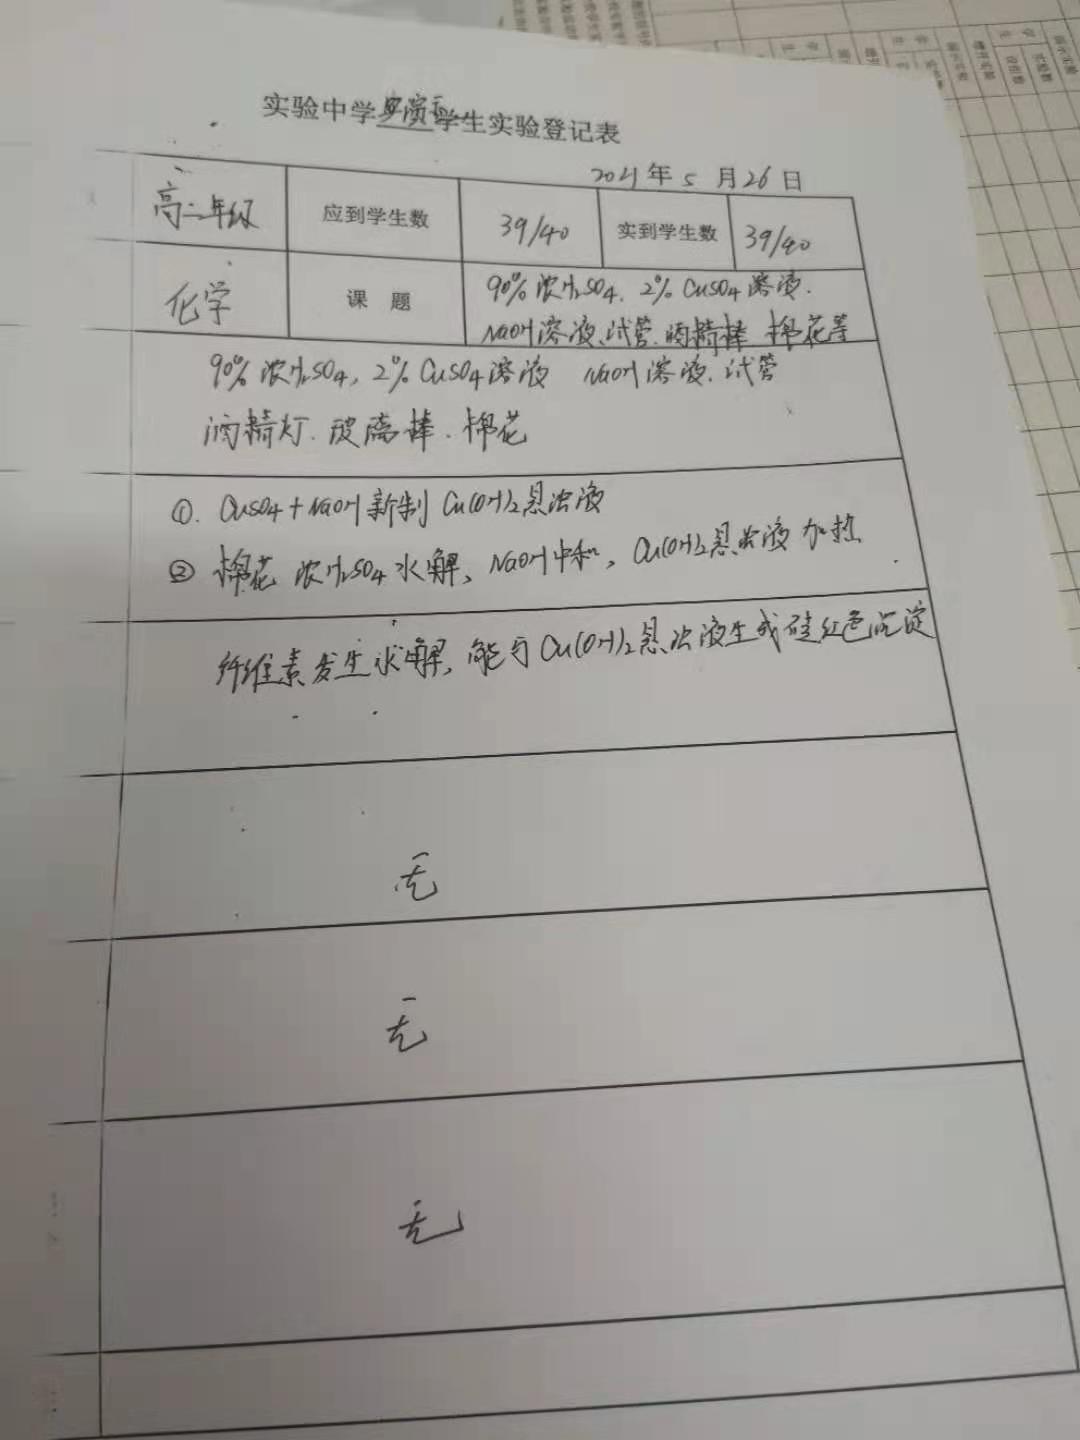 实验中学学生实验登记表
2021年5月26日
高二年级 应到学生数 39/40 实到学生数 39/40
化学 课题 90%浓H₂SO₄、2% CuSO₄溶液.
NaOH溶液、试管、酒精棒 棉花等
90%浓H₂SO₄, 2% CuSO₄溶液 NaOH溶液、试管
酒精灯、玻璃棒、棉花
①. CuSO₄+NaOH新制Cu(OH)₂悬浊液
② 棉花 浓H₂SO₄水解、NaOH中和, Cu(OH)₂悬浊液加热.
纤维素发生水解, 能与Cu(OH)₂悬浊液生成砖红色沉淀
无
无
无